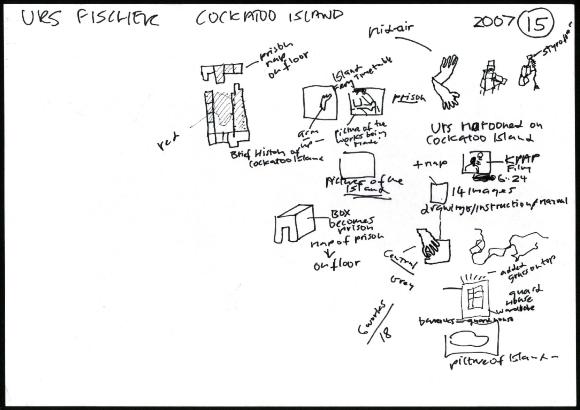 URS FISCHER COCKATOO ISLAND 2007 15
Midair
prison
map
on floor
Island
Ferry Timetable
prison
styrofoam
red
arm
up
picture of the
works being
made
Brief History of
Cockatoo Island
Urs marooned on
Cockatoo Island
+ map
KPAP
Film
6:24
picture of the
Island
14 images
drawings/instruction/manual
BOX
becomes
prison
map of prison
on floor
Central
Gray
added
grass on top
guard
House
wardrobe
barracks guardhouse
6 works
18
picture of Island